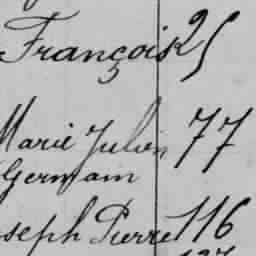 François 25
Marie Julien 77
Germain
Joseph Pierre 116